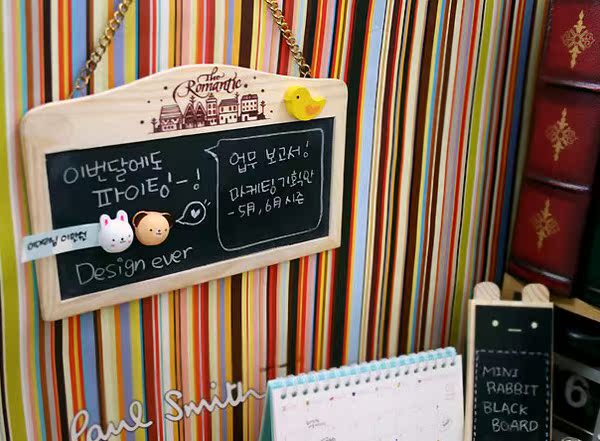 The
Romantic
이번달에도
파이팅-!
업무 보고서!
마케팅 기획안
- 5月, 6月 시즌
Design ever
Paul Smith
MINI
RABBIT
BLACK
BOARD
6